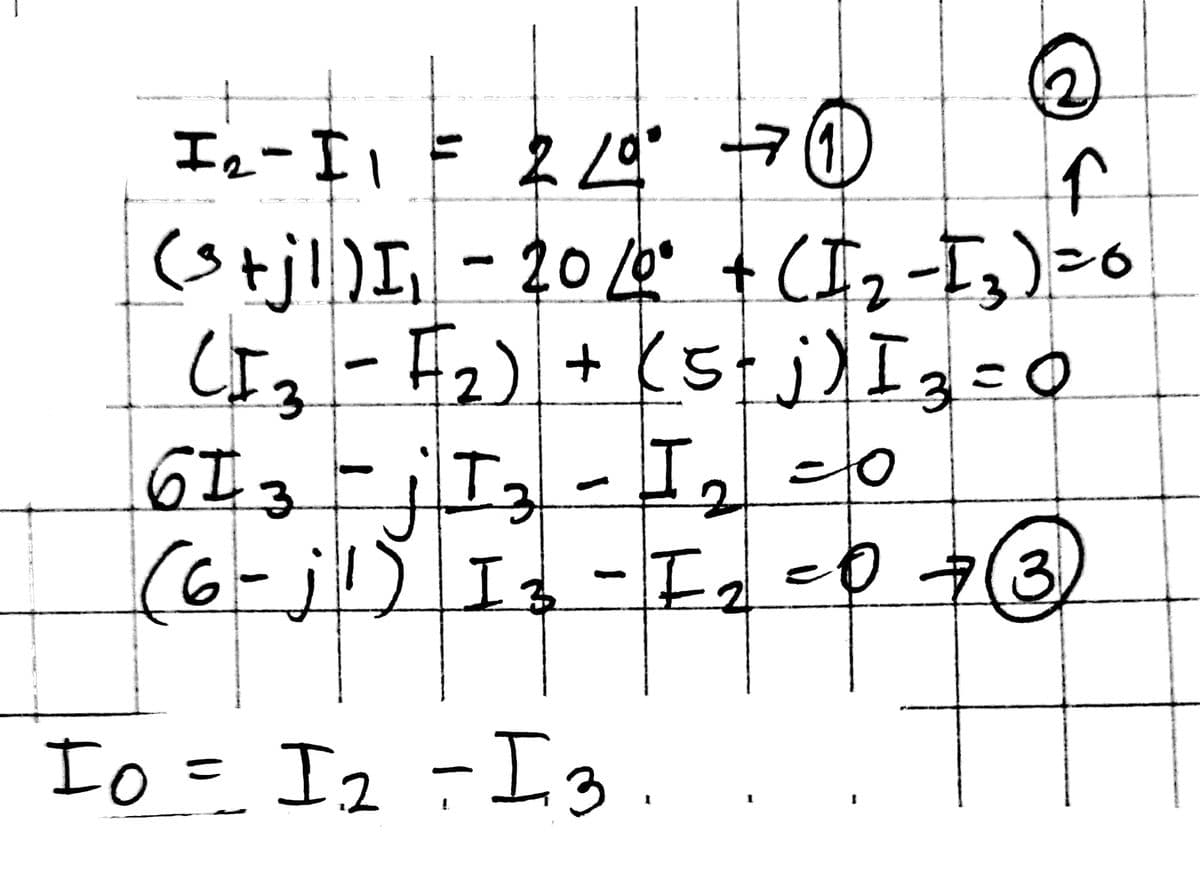 I₂ - I₁ = 2∠0° → ①
(3 + j1)I₁ - 20∠0° + (I₂ - I₃) = 0 → ②
(I₃ - I₂) + (5 - j)I₃ = 0
6I₃ - jI₃ - I₂ = 0
(6 - j1)I₃ - I₂ = 0 → ③
I₀ = I₂ - I₃